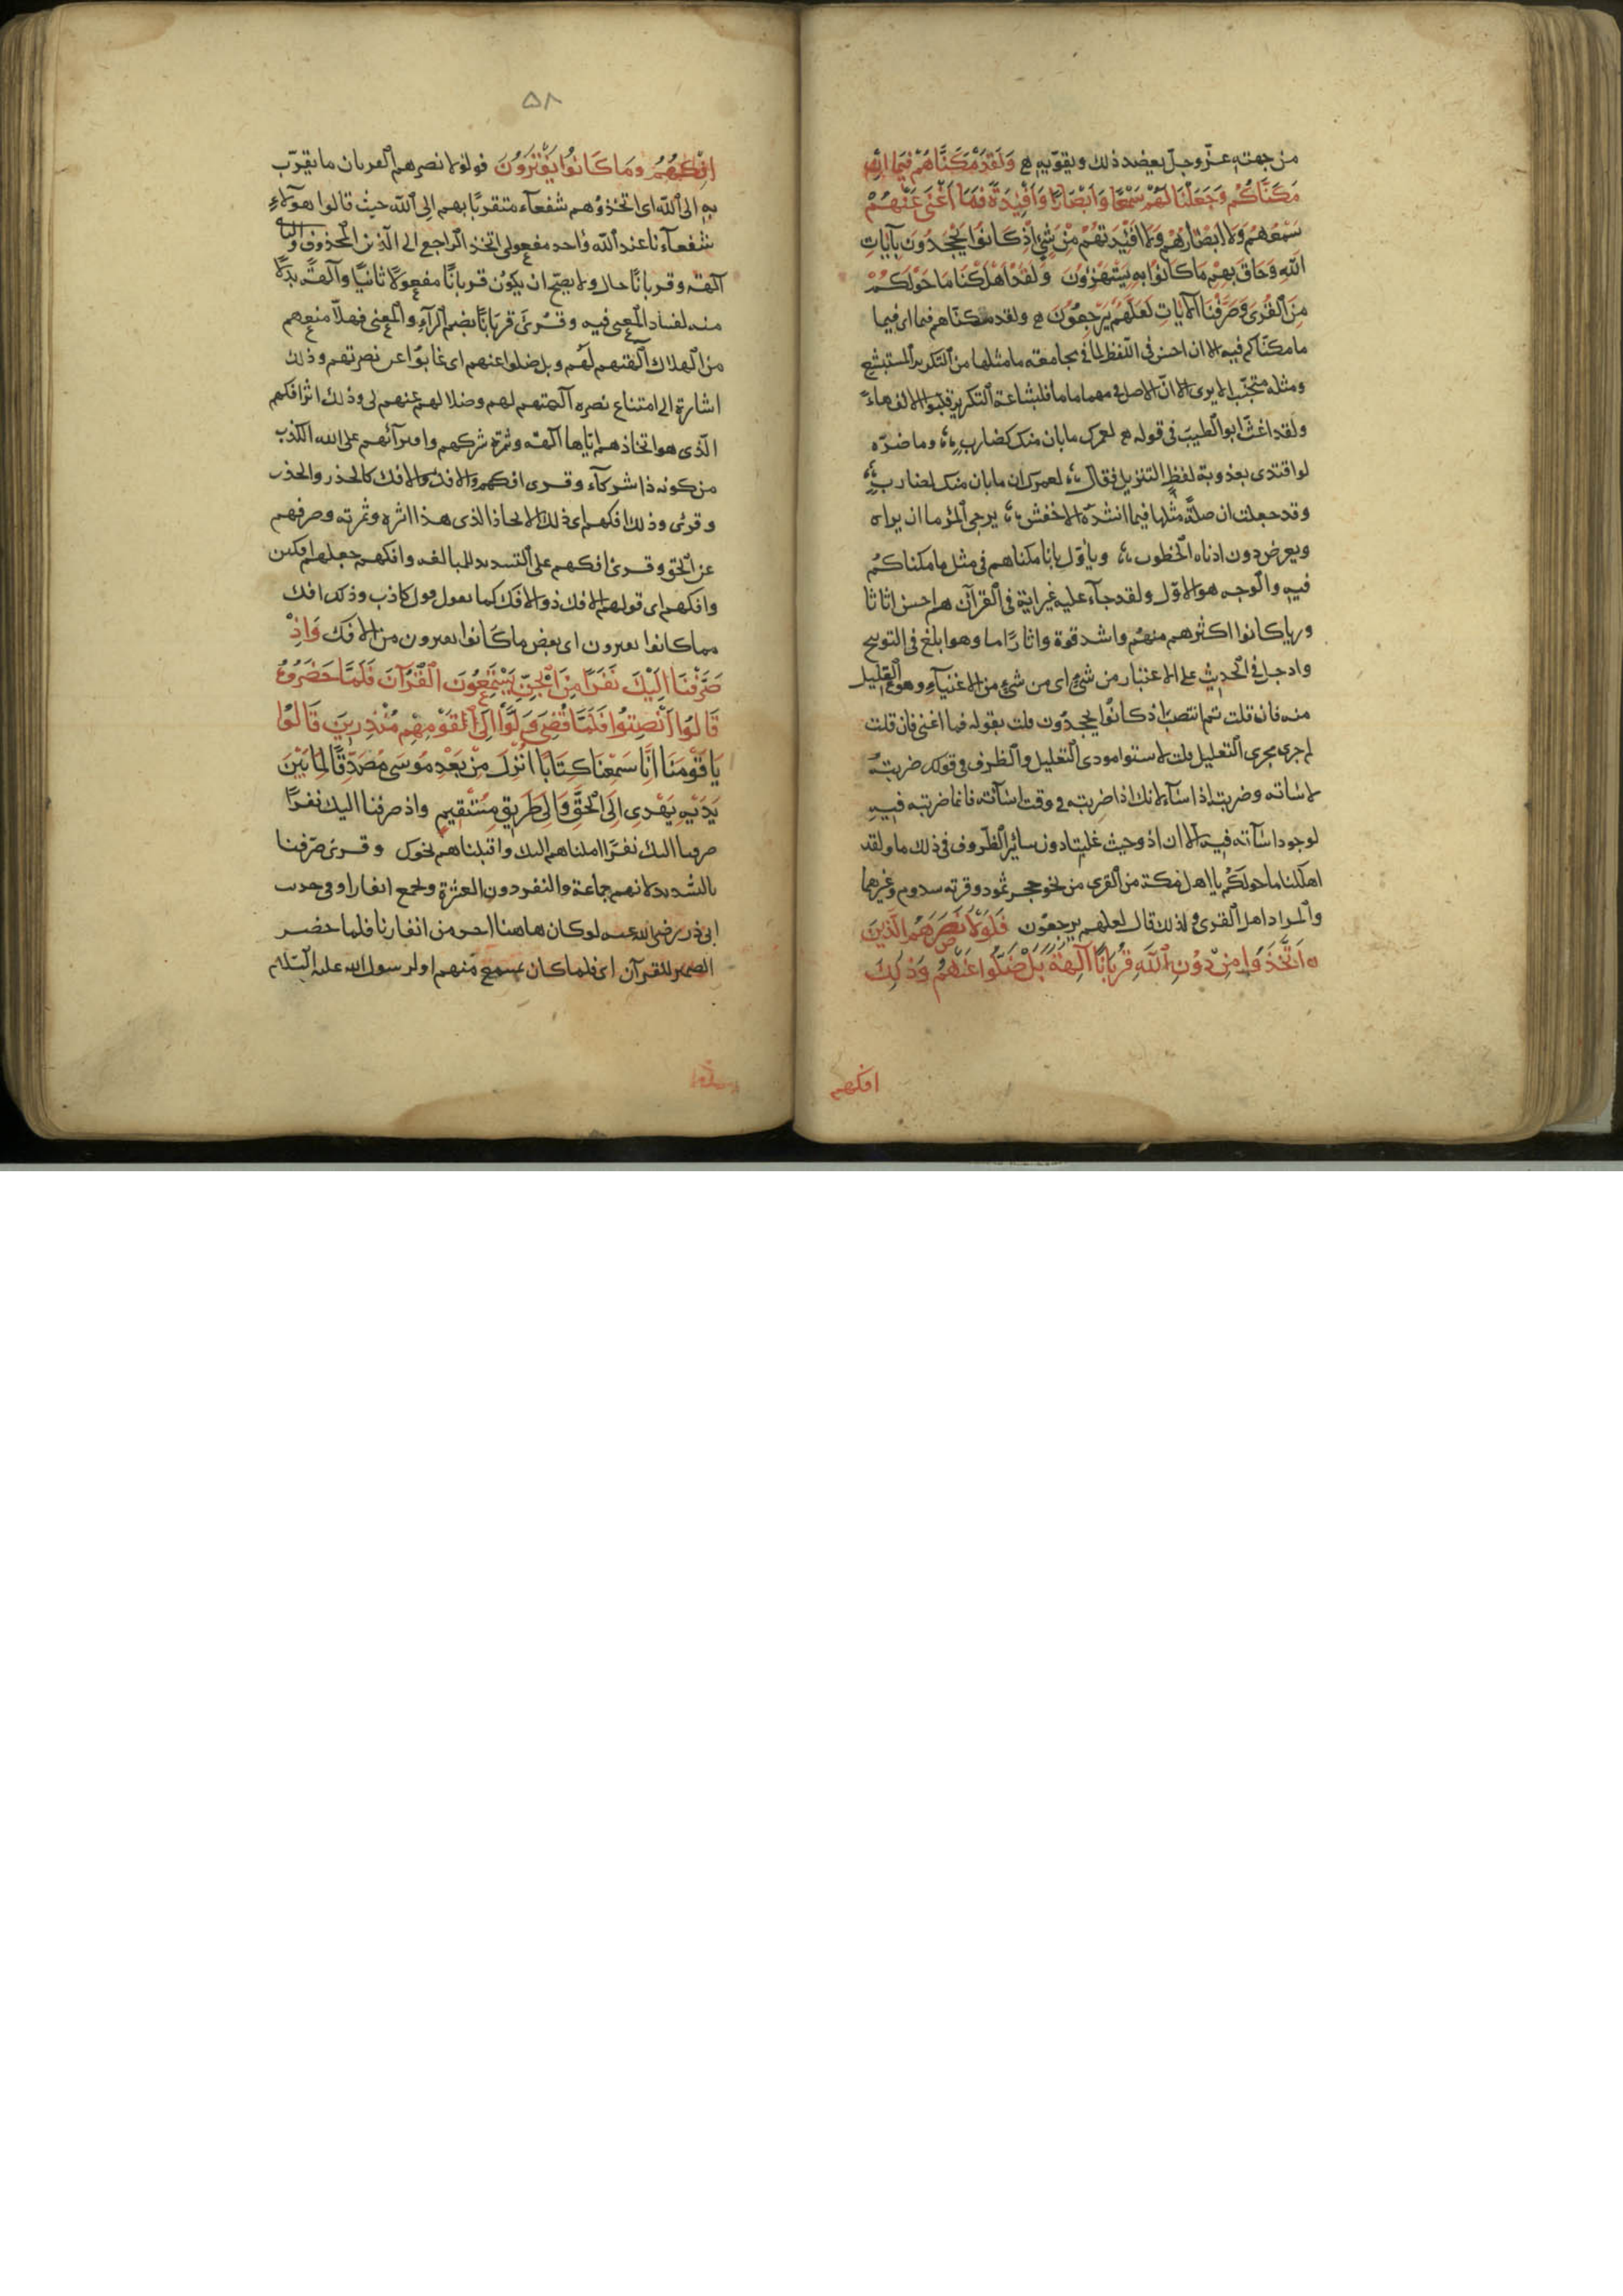 من جهته عزّ وجلّ يعضد ذلك ويقوّيه وَلَقَدْ مَكَّنَّاهُمْ فِيمَا اِنْ
مَكَّنَّاكُمْ وَجَعَلْنَا لَهُمْ سَمْعًا وَاَبْصَارًا وَاَفْئِدَةً فَمَا اَغْنَى عَنْهُمْ
سَمْعُهُمْ وَلَا اَبْصَارُهُمْ وَلَا اَفْئِدَتُهُمْ مِنْ شَيْءٍ اِذْ كَانُوا يَجْحَدُونَ بِآيَاتِ
اللّهِ وَحَاقَ بِهِمْ مَا كَانُوا بِهِ يَسْتَهْزِؤُنَ وَلَقَدْ اَهْلَكْنَا مَا حَوْلَكُمْ
مِنَ الْقُرَى وَصَرَّفْنَا الْآيَاتِ لَعَلَّهُمْ يَرْجِعُونَ ولقد مكنّاهم فيما اى فيما
ما مكنّاكم فيه الا ان احسن فى اللفظ لما فى مجامعته ما مثلها من التكرير المستبشع
ومثله متجنّب الا يرى الا انّ الاصل فى مهما ماما فلبشاعة التكرير قلبوا الالف هاءً
ولقد اغثّ ابو الطيب فى قوله لعمرك مابان منك كضارب وما ضرّه
لو اقتدى بعذوبة لفظ التنزيل فقال لعمرك ان مابان منك لضارب
وقد جعلت ان صلةً مثلها فيما انشده الاخفش يرجى المرء ما ان يراه
ويعرض دون ادناه الخطوب ويأوّل بانا مكناهم فى مثل ما مكناكم
فيه والوجه هو الاوّل ولقد جآء عليه غير اية فى القرآن هم احسن اثاثا
ورءيا كانوا اكثر هم منهم واشد قوة واثارًا ما وهو ابلغ فى التوبيح
وادخل فى الحديث على الاعتبار من شئ اى من شئ من الاغنيآء وهو القليل
منه فان قلت تم انتصب اذ كانوا يجحدون قلت بقوله فما اغنى فان قلت
لم جرى مجرى التعليل قلت لاستوا مودى التعليل والظرف فى قولك ضربته
لاساته وضربته اذا سآء لانك اذا ضربته فى وقت اسآئته فانما ضربته فيه
لوجود اسآئته فيه الا ان اذ وحيث غلبتا دون سائر الظروف فى ذلك ما ولقد
اهلكنا ما حولكم يا اهل مكة من القرى من نحو حجر ثمود وقرية سدوم وغيرهما
والمراد اهل القرى ولذلك قال لعلهم يرجعون فَلَوْلَا نَصَرَهُمُ الَّذِينَ
اتَّخَذُوا مِنْ دُونِ اللّهِ قُرْبَانًا آلِهَةً بَلْ ضَلُّوا عَنْهُمْ وَذٰلِكَ
افكهم
٥٨
اِفْكُهُمْ وَمَا كَانُوا يَفْتَرُونَ فولولا نصرهم القربان ما يقرّب
به الى الله اى اتخذوهم شفعآء متقربًا بهم الى الله حيث قالوا هؤلاء
شفعآءنا عند الله واحد مفعولى اتخذ الراجع الى الذين المحذوف والثانى
آلهة وقربانًا حال ولا يصحّ ان يكون قربانًا مفعولًا ثانيًا وآلهةً بدلًا
منه لفساد المعنى فيه وقرئ قربانًا بضم الرآء والمعنى فهلّا منعهم
من الهلاك آلهتهم لهم وبل ضلوا عنهم اى غابوا عن نصرتهم وذلك
اشارة الى امتناع نصرة آلهتهم لهم وضلالهم عنهم لى وذلك اثر افكهم
الّذى هو اتخاذهم ايّاها آلهة وثمرة شركهم وافترآئهم على الله الكذب
من كونه ذا شركآء وقرى افكهم والافك والافك كالحذر والحذر
وقرئ وذلك افكهم اى ذلك الاتخاذ الذى هذا اثره وثمرته وصرفهم
عن الحق وقرئ افكهم على التشديد للمبالغة وافكهم جعلهم افكين
وافكهم اى قولهم الافك ذو الافك كما تقول قول كاذب وذلك افك
مما كانوا يفترون اى بعض ما كانوا يفترون من الافك وَاِذْ
صَرَّفْنَا اِلَيْكَ نَفَرًا مِنَ الْجِنِّ يَسْتَمِعُونَ الْقُرْآنَ فَلَمَّا حَضَرُوهُ
قَالُوا اَنْصِتُوا فَلَمَّا قُضِيَ وَلَّوْا اِلَى الْقَوْمِهِمْ مُنْذِرِينَ قَالُوا
يَا قَوْمَنَا اِنَّا سَمِعْنَا كِتَابًا اُنْزِلَ مِنْ بَعْدِ مُوسَى مُصَدِّقًا لِمَا بَيْنَ
يَدَيْهِ يَهْدِى اِلَى الْحَقِّ وَاِلَى طَرِيقٍ مُسْتَقِيمٍ واذ صرفنا اليك نفرًا
صرفنا اليك نفرًا املناهم اليك واقبلناهم نحوك وقرئ صرّفنا
بالتشديد لانهم جماعة والنفر دون العشرة ويجمع انفارا وفى حديث
ابى ذر رضى الله عنه لو كان هاهنا احد من انفارنا فلما حضر
الضمير للقرآن اى فلما كان بمسمع منهم او لرسول الله عليه السلام